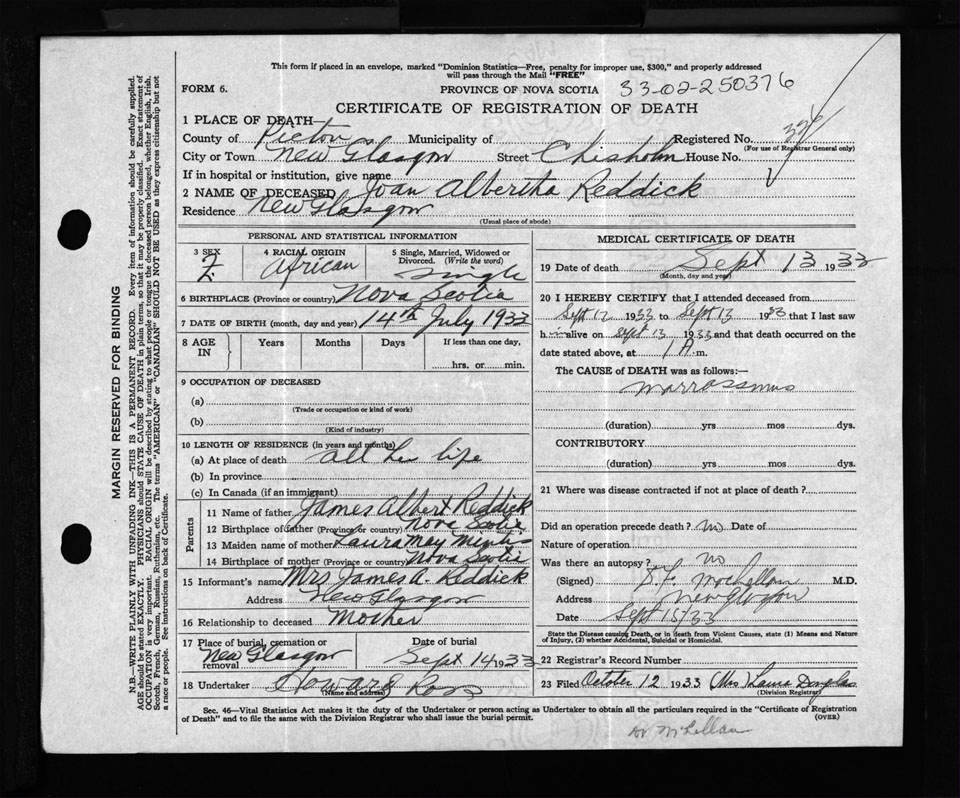 This form if placed in an envelope, marked "Dominion Statistics—Free, penalty for improper use, $300," and properly addressed
will pass through the Mail "FREE"
FORM 6.
PROVINCE OF NOVA SCOTIA 33-02-250376
CERTIFICATE OF REGISTRATION OF DEATH
1 PLACE OF DEATH—
County of Pictou Municipality of Registered No.
(For use of Registrar General only)
City or Town New Glasgow Street Chisholm House No.
If in hospital or institution, give name
2 NAME OF DECEASED Joan Albertha Reddick
Residence New Glasgow
(Usual place of abode)
PERSONAL AND STATISTICAL INFORMATION
3 SEX F. 4 RACIAL ORIGIN African 5 Single, Married, Widowed or Divorced. (Write the word) Single
6 BIRTHPLACE (Province or country) Nova Scotia
7 DATE OF BIRTH (month, day and year) 14th July 1933
8 AGE IN Years Months Days If less than one day,
hrs. or min.
9 OCCUPATION OF DECEASED
(a)
(Trade or occupation or kind of work)
(b)
(Kind of industry)
10 LENGTH OF RESIDENCE (in years and months)
(a) At place of death all her life
(b) In province
(c) In Canada (if an immigrant)
Parents
11 Name of father James Albert Reddick
12 Birthplace of father (Province or country) Nova Scotia
13 Maiden name of mother Laura May
14 Birthplace of mother (Province or country) Nova Scotia
15 Informant's name Mrs James A. Reddick
Address New Glasgow
16 Relationship to deceased Mother
17 Place of burial, cremation or removal New Glasgow Date of burial Sept 14 1933
18 Undertaker Howard Ross
(Name and address)
MEDICAL CERTIFICATE OF DEATH
19 Date of death Sept 13 1933
(Month, day and year)
20 I HEREBY CERTIFY that I attended deceased from
Sept 12 1933 to Sept 13 1933 that I last saw
h im alive on Sept 13 1933 and that death occurred on the
date stated above, at 1 A.m.
The CAUSE of DEATH was as follows:—
Marrassmus
(duration) yrs mos dys.
CONTRIBUTORY
(duration) yrs. mos. dys.
21 Where was disease contracted if not at place of death?
Did an operation precede death? no Date of
Nature of operation
Was there an autopsy? no
(Signed) McLellan M.D.
Address New Glasgow
Date Sept 15/33
State the Disease causing Death, or in death from Violent Causes, state (1) Means and Nature
of Injury, (2) whether Accidental, Suicidal or Homicidal.
22 Registrar's Record Number
23 Filed October 12 1933 (Mrs) Laura Douglas
(Division Registrar)
Sec. 46—Vital Statistics Act makes it the duty of the Undertaker or person acting as Undertaker to obtain all the particulars required in the "Certificate of Registration
of Death" and to file the same with the Division Registrar who shall issue the burial permit. (OVER)
Dr McLellan
MARGIN RESERVED FOR BINDING
N.B.—WRITE PLAINLY WITH UNFADING INK—THIS IS A PERMANENT RECORD. Every item of information should be carefully supplied.
AGE should be stated EXACTLY. PHYSICIANS should STATE CAUSE OF DEATH in plain terms, so that it may be properly classified. Exact statement of
OCCUPATION is very important. RACIAL ORIGIN will be described by stating to what people or tongue the deceased person belonged, whether English, Irish,
Scotch, French, German, Russian, Ruthenian, etc. The terms "AMERICAN" or "CANADIAN" SHOULD NOT BE USED as they express citizenship but not
a race or people. See instructions on back of Certificate.